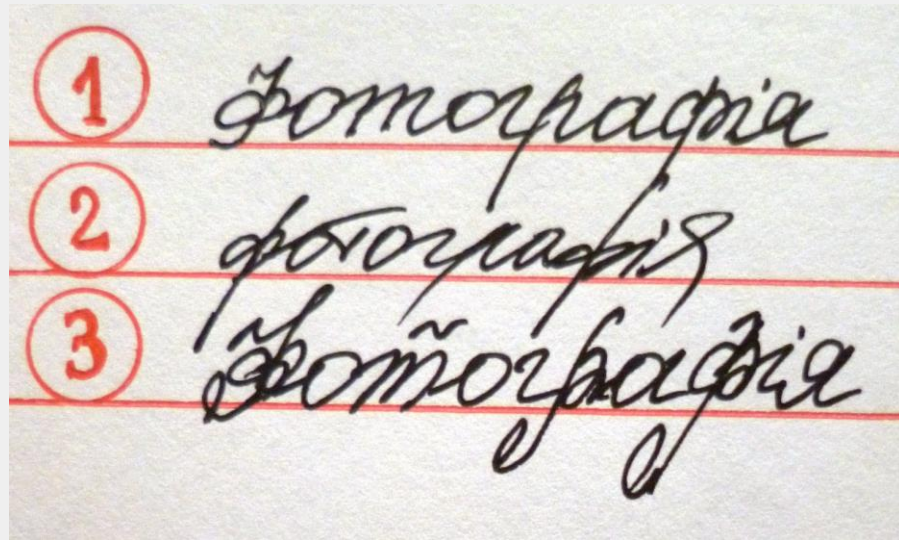 1 Фотографія
2 фотографія
3 Фотографія